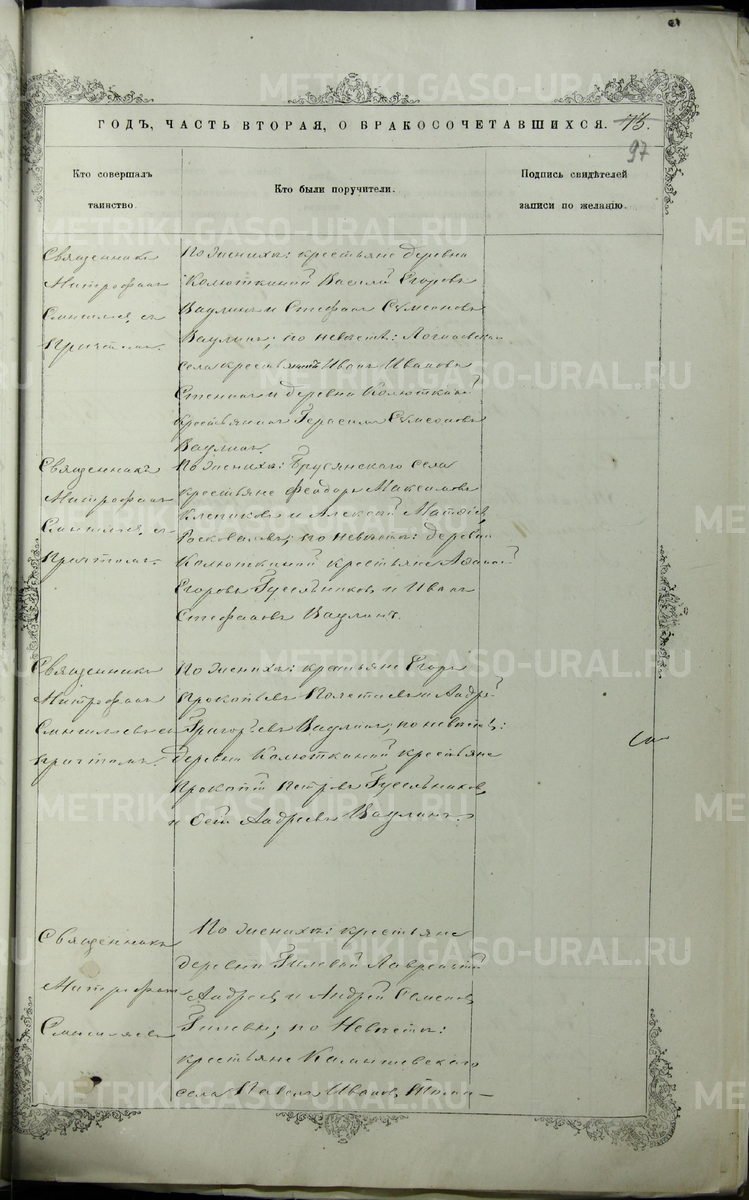 ГОДЪ, ЧАСТЬ ВТОРАЯ, О БРАКОСОЧЕТАВШИХСЯ. 75.
97
Кто совершалъ
таинство.
Кто были поручители.
Подпись свидѣтелей
записи по желанію.
Священникъ
Митрофанъ
съ
Причтомъ.
По женихѣ: крестьяне деревни
Колюткиной Василій Егоровъ
Ваулинъ и Стефанъ Сѵмеоновъ
Ваулинъ; по невѣстѣ: Логиновскаго
села крестьянинъ Иванъ Ивановъ
и деревни Колюткиной
крестьянинъ Герасимъ Сѵмеоновъ
Ваулинъ.
Священникъ
Митрофанъ
съ
Причтомъ.
По женихѣ: Бруснянскаго села
крестьяне Феодоръ Максимовъ
и Алексѣй
по невѣстѣ: деревни
Колюткиной крестьяне
Егоровъ Гусельниковъ и Иванъ
Стефановъ Ваулинъ.
Священникъ
Митрофанъ
Смышляевъ съ
причтомъ.
По женихѣ: крестьяне Егоръ
Прокопьевъ Полетаевъ и Андрей
Григорьевъ Ваулинъ, по невѣстѣ:
деревни Колюткиной крестьяне
Прокопій Петровъ Гусельниковъ,
и Андреевъ Ваулинъ.
Священникъ
Митрофанъ
Смышляевъ
По женихѣ: крестьяне
деревни Гилевой Лаврентій
Андреев, и Андрей Семенов,
Гилевы; по Невѣстѣ:
крестьяне
села Павелъ Иванов,
METRIKI.GASO-URAL.RU